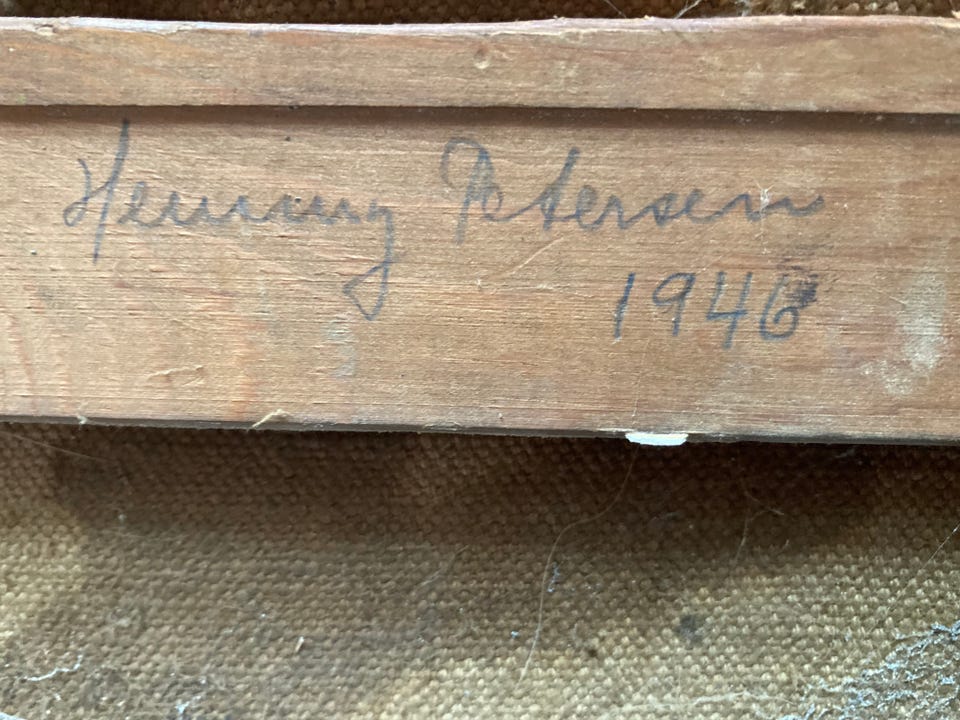 Henning Petersen
1946